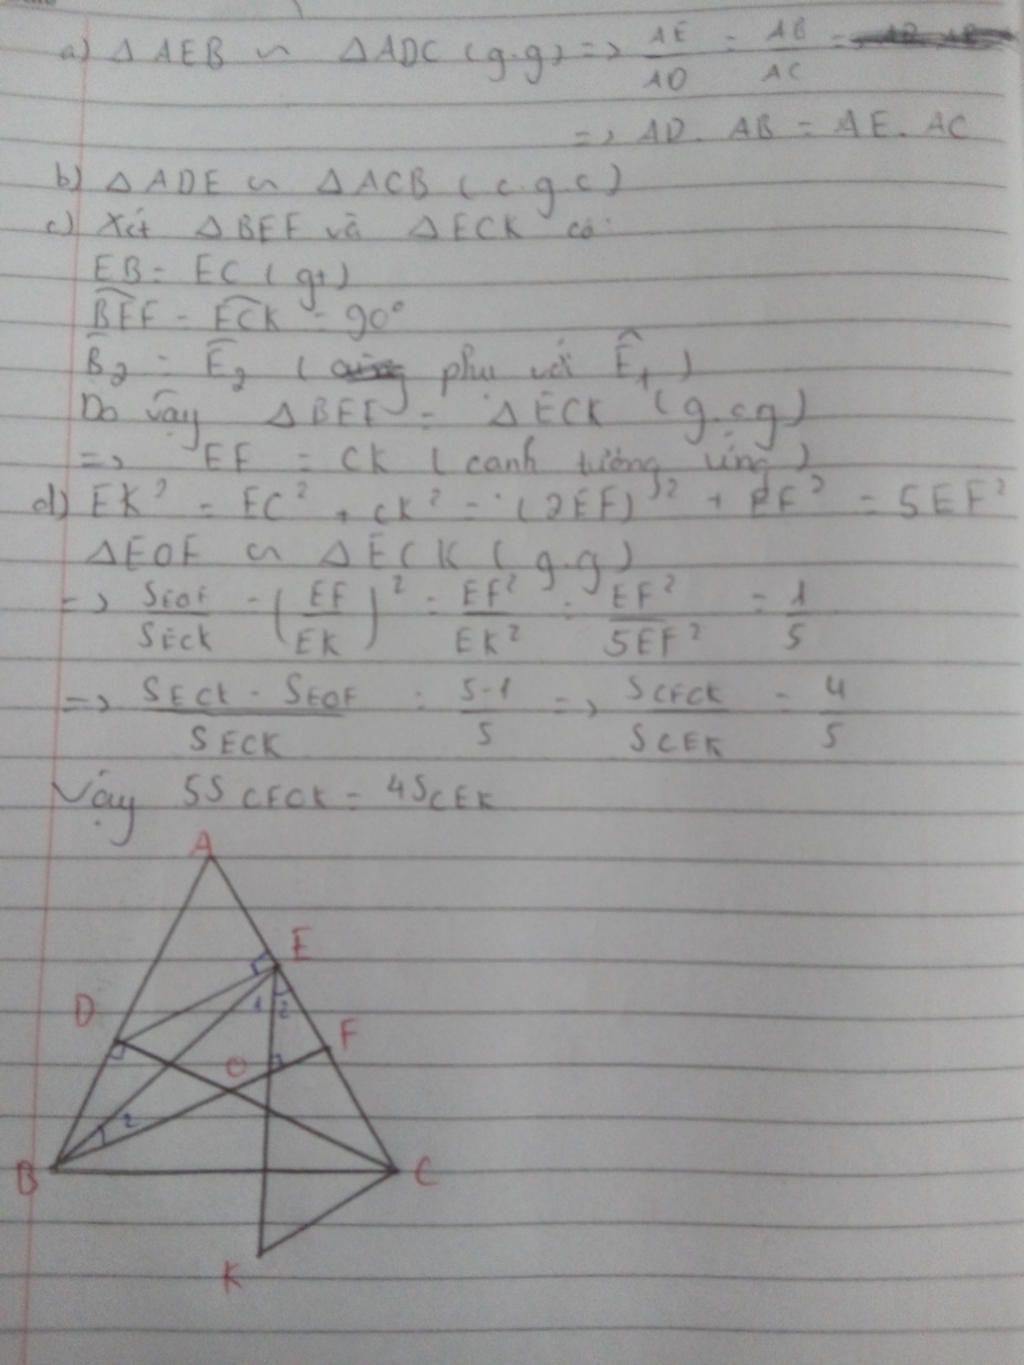 a) Δ AEB ∽ Δ ADC (g.g) => AE/AD = AB/AC =
=> AD. AB = AE. AC
b) Δ ADE ∽ Δ ACB (c.g.c)
c) Xét Δ BEF và Δ ECK có:
EB = EC (gt)
BEF = ECK = 90°
B2 = E2 (cùng phụ với E1)
Do vậy Δ BEF = Δ ECK (g.c.g)
=> EF = CK (cạnh tương ứng)
d) EK² = EC² + CK² = (2EF)² + EF² = 5EF²
Δ EOF ∽ Δ ECK (g.g)
=> SEOF/SECK = (EF/EK)² = EF²/EK² = EF²/5EF² = 1/5
=> SECK - SEOF/SECK = 5-1/5 => SCFCK/SCEK = 4/5
Vậy 5SCFCK = 4SCEK
A
E
1 2
D
F
O
2
B
C
K